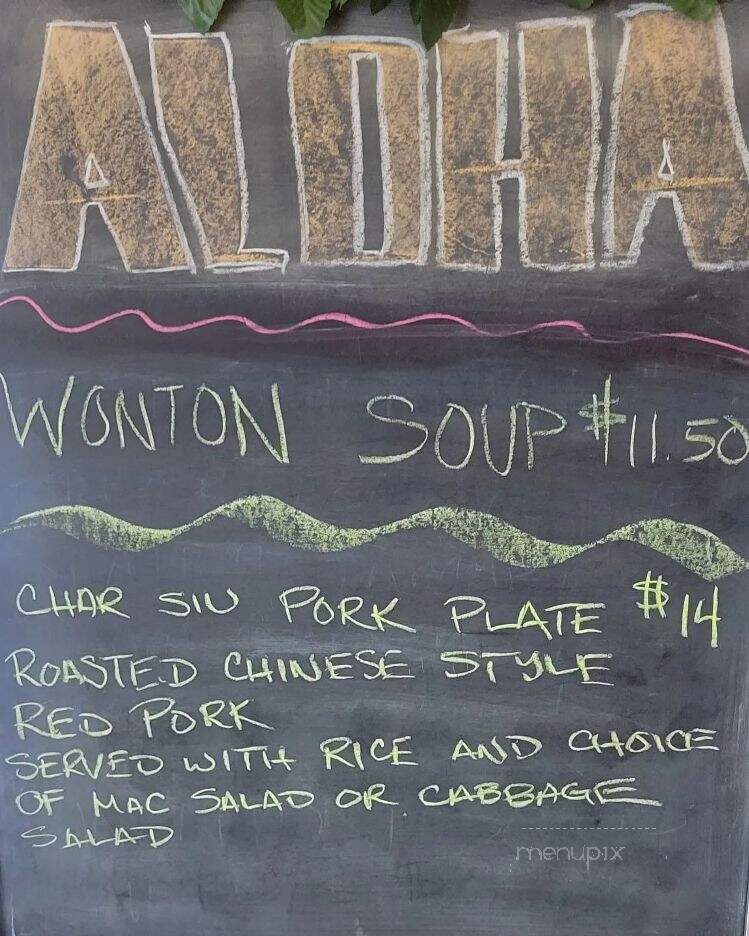 ALOHA
WONTON SOUP $11.50
CHAR SIU PORK PLATE $14
ROASTED CHINESE STYLE
RED PORK
SERVED WITH RICE AND CHOICE
OF MAC SALAD OR CABBAGE
SALAD
menupix